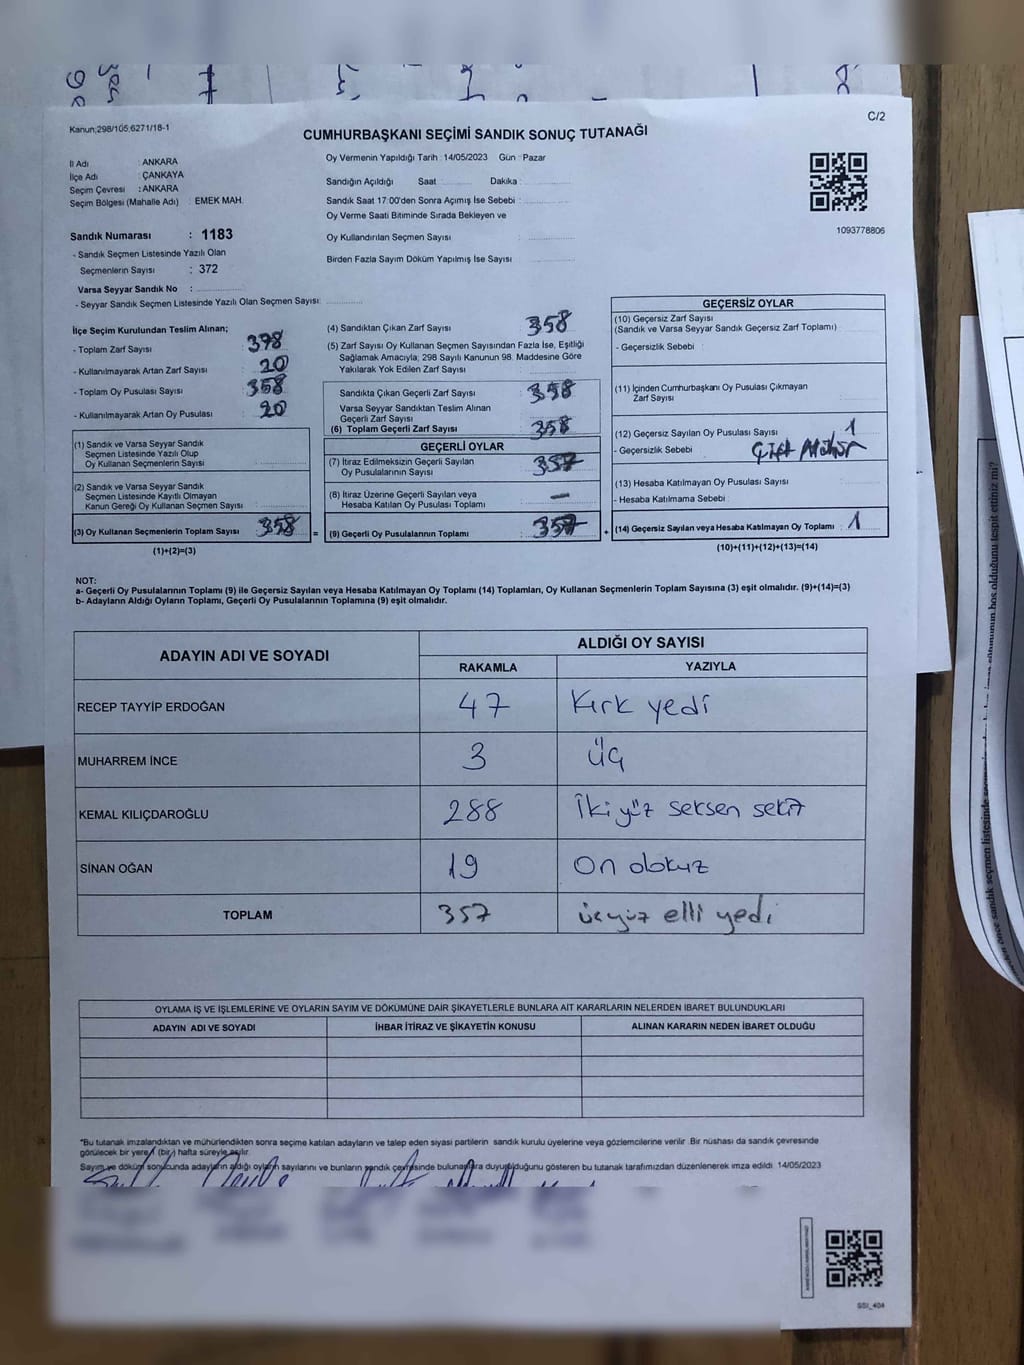 C/2
Kanun;298/105;6271/18-1
CUMHURBAŞKANI SEÇİMİ SANDIK SONUÇ TUTANAĞI
İl Adı : ANKARA
İlçe Adı : ÇANKAYA
Seçim Çevresi : ANKARA
Seçim Bölgesi (Mahalle Adı) : EMEK MAH.
Sandık Numarası : 1183
- Sandık Seçmen Listesinde Yazılı Olan
Seçmenlerin Sayısı : 372
Varsa Seyyar Sandık No :
- Seyyar Sandık Seçmen Listesinde Yazılı Olan Seçmen Sayısı:
Oy Vermenin Yapıldığı Tarih : 14/05/2023 Gün : Pazar
Sandığın Açıldığı Saat Dakika :
Sandık Saat 17:00'den Sonra Açımış İse Sebebi :
Oy Verme Saati Bitiminde Sırada Bekleyen ve
Oy Kullandırılan Seçmen Sayısı :
Birden Fazla Sayım Döküm Yapılmış İse Sayısı :
1093778806
İlçe Seçim Kurulundan Teslim Alınan;
- Toplam Zarf Sayısı : 378
- Kullanılmayarak Artan Zarf Sayısı : 20
- Toplam Oy Pusulası Sayısı : 358
- Kullanılmayarak Artan Oy Pusulası : 20
(1) Sandık ve Varsa Seyyar Sandık
Seçmen Listesinde Yazılı Olup
Oy Kullanan Seçmenlerin Sayısı :
(2) Sandık ve Varsa Seyyar Sandık
Seçmen Listesinde Kayıtlı Olmayan
Kanun Gereği Oy Kullanan Seçmen Sayısı :
(3) Oy Kullanan Seçmenlerin Toplam Sayısı : 358 =
(1)+(2)=(3)
(4) Sandıktan Çıkan Zarf Sayısı : 358
(5) Zarf Sayısı Oy Kullanan Seçmen Sayısından Fazla İse, Eşitliği
Sağlamak Amacıyla; 298 Sayılı Kanunun 98. Maddesine Göre
Yakılarak Yok Edilen Zarf Sayısı :
Sandıkta Çıkan Geçerli Zarf Sayısı : 358
Varsa Seyyar Sandıktan Teslim Alınan
Geçerli Zarf Sayısı
(6) Toplam Geçerli Zarf Sayısı : 358
GEÇERLİ OYLAR
(7) İtiraz Edilmeksizin Geçerli Sayılan
Oy Pusulalarının Sayısı : 357
(8) İtiraz Üzerine Geçerli Sayılan veya
Hesaba Katılan Oy Pusulası Toplamı : —
(9) Geçerli Oy Pusulalarının Toplamı : 357 +
GEÇERSİZ OYLAR
(10) Geçersiz Zarf Sayısı
(Sandık ve Varsa Seyyar Sandık Geçersiz Zarf Toplamı) :
- Geçersizlik Sebebi :
(11) İçinden Cumhurbaşkanı Oy Pusulası Çıkmayan
Zarf Sayısı :
(12) Geçersiz Sayılan Oy Pusulası Sayısı : 1
- Geçersizlik Sebebi : Çift Mühür
(13) Hesaba Katılmayan Oy Pusulası Sayısı :
- Hesaba Katılmama Sebebi :
(14) Geçersiz Sayılan veya Hesaba Katılmayan Oy Toplamı : 1
(10)+(11)+(12)+(13)=(14)
NOT:
a- Geçerli Oy Pusulalarının Toplamı (9) ile Geçersiz Sayılan veya Hesaba Katılmayan Oy Toplamı (14) Toplamları, Oy Kullanan Seçmenlerin Toplam Sayısına (3) eşit olmalıdır. (9)+(14)=(3)
b- Adayların Aldığı Oyların Toplamı, Geçerli Oy Pusulalarının Toplamına (9) eşit olmalıdır.
ADAYIN ADI VE SOYADI ALDIĞI OY SAYISI
RAKAMLA YAZIYLA
RECEP TAYYİP ERDOĞAN 47 Kırk yedi
MUHARREM İNCE 3 Üç
KEMAL KILIÇDAROĞLU 288 İkiyüz seksen sekiz
SİNAN OĞAN 19 On dokuz
TOPLAM 357 üçyüz elli yedi
OYLAMA İŞ VE İŞLEMLERİNE VE OYLARIN SAYIM VE DÖKÜMÜNE DAİR ŞİKAYETLERLE BUNLARA AİT KARARLARIN NELERDEN İBARET BULUNDUKLARI
ADAYIN ADI VE SOYADI İHBAR İTİRAZ VE ŞİKAYETİN KONUSU ALINAN KARARIN NEDEN İBARET OLDUĞU
*Bu tutanak imzalandıktan ve mühürlendikten sonra seçime katılan adayların ve talep eden siyasi partilerin sandık kurulu üyelerine veya gözlemcilerine verilir .Bir nüshası da sandık çevresinde
görülecek bir yere 1 (bir) hafta süreyle asılır.
Sayım ve döküm sonucunda adayların aldığı oyların sayılarını ve bunların sandık çevresinde bulunanlara duyurulduğunu gösteren bu tutanak tarafımızdan düzenlenerek imza edildi 14/05/2023
SSI_404